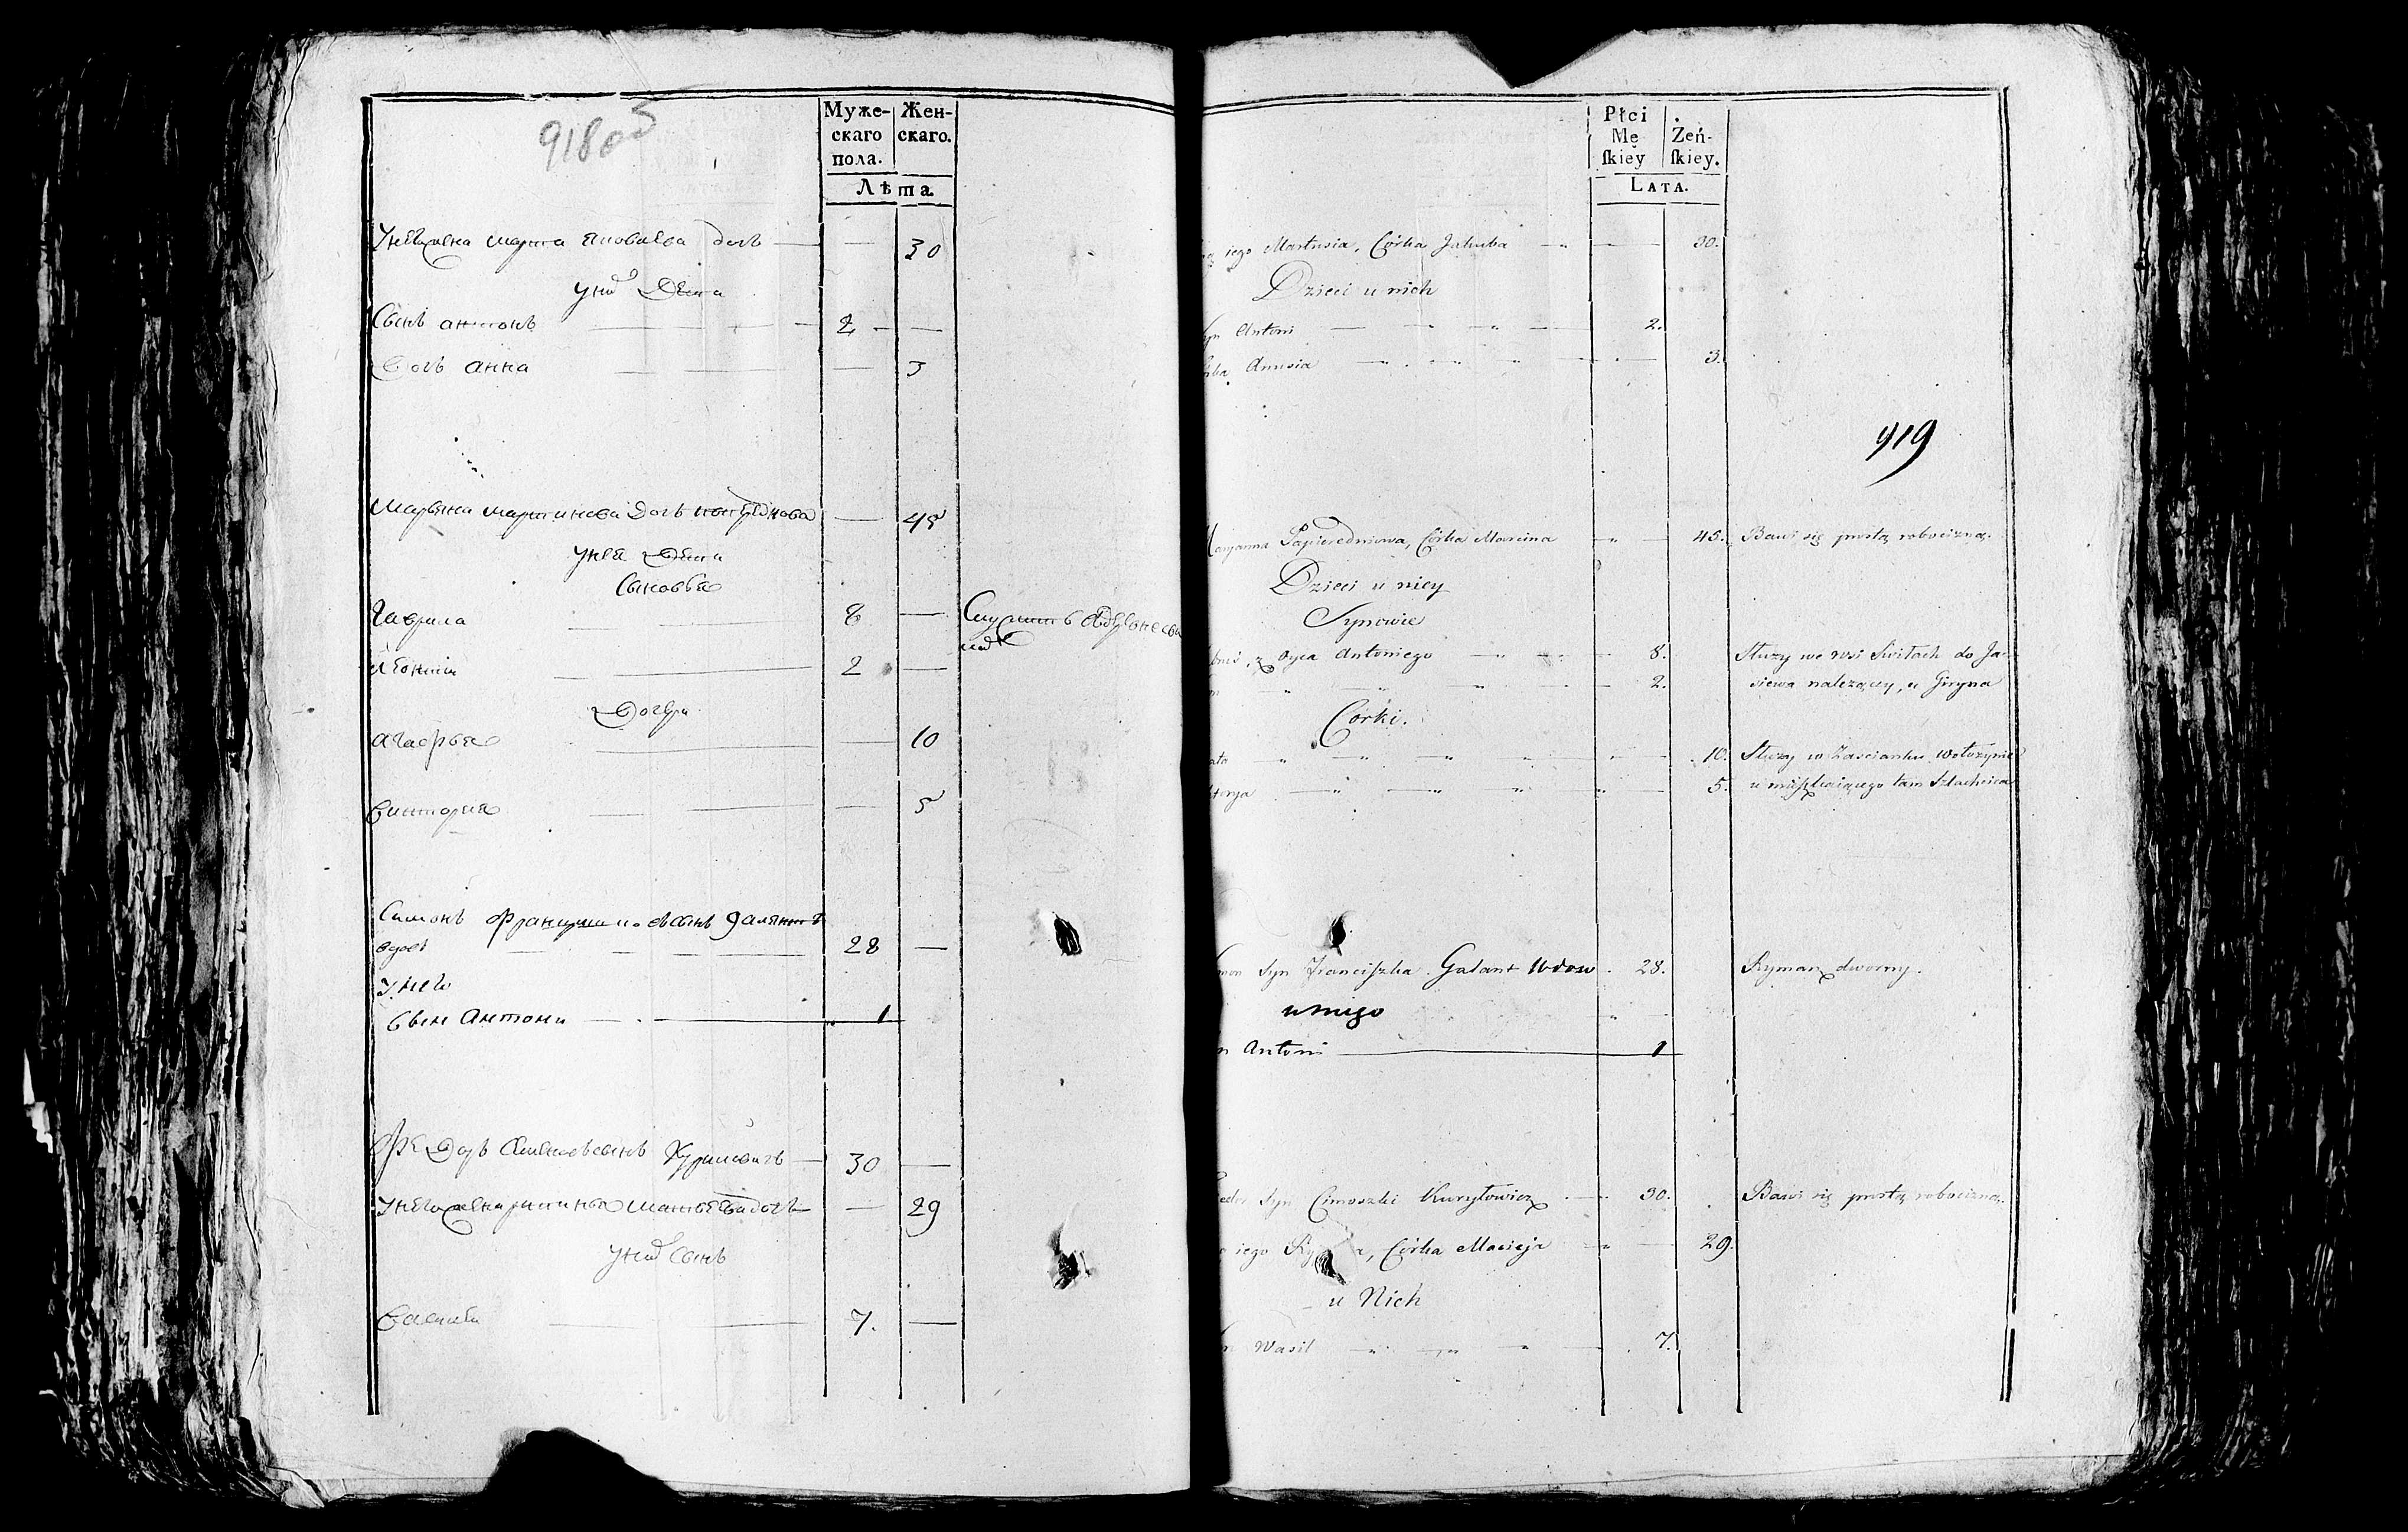 918об
Муже-
скаго
пола.
Жен-
скаго.
Лѣта.
У него жена марта яковлева дочь — — 30
у них Дети
Сынъ антонъ — 2 —
Дочь анна — — 3
Марьяна мартинова Дочь — 45
у нея Дети
Сыновья
Гаврила — 8 — Служитъ в
2 —
Дочери
агафья — — 10
Виктория — — 5
Симонъ францишковъ сынъ Галянтъ
вдовъ — — — 28 —
У него
Сын Антони — 1
Федоръ сынъ Куриловичъ — 30 —
У него жена матвеева дочь — — 29
у них Сынъ
Василий — 7. —
Płci
Mę
ſkiey
Żeń-
ſkiey.
LATA.
iego Martusia, Córka Jakuba — 30.
Dzieci u nich
Syn Antoni — 2.
Anusia — 3.
919
Maryanna Papieredniowa, Córka Marcina — 45. Bawi się prostą robocizną.
Dzieci u niey
Synowie
z oyca Antoniego — 8. Służy we wsi Switach do Ja-
2. siewa należący, u Gryna
Córki.
ata — 10. Służy w Zascianku Wołożynie
torya — 5. u mięszkaiącego tam Szlachcica
mon Syn Franciſzka Galant Wdow. 28. Rymarz dworny.
u niego
n Antoni — 1
edor Syn Cimoszki Kuryłowicz — 30. Bawi się prostą robocizną.
iego Ry a, Córka Macieja — 29.
u Nich
n Wasil — 7.